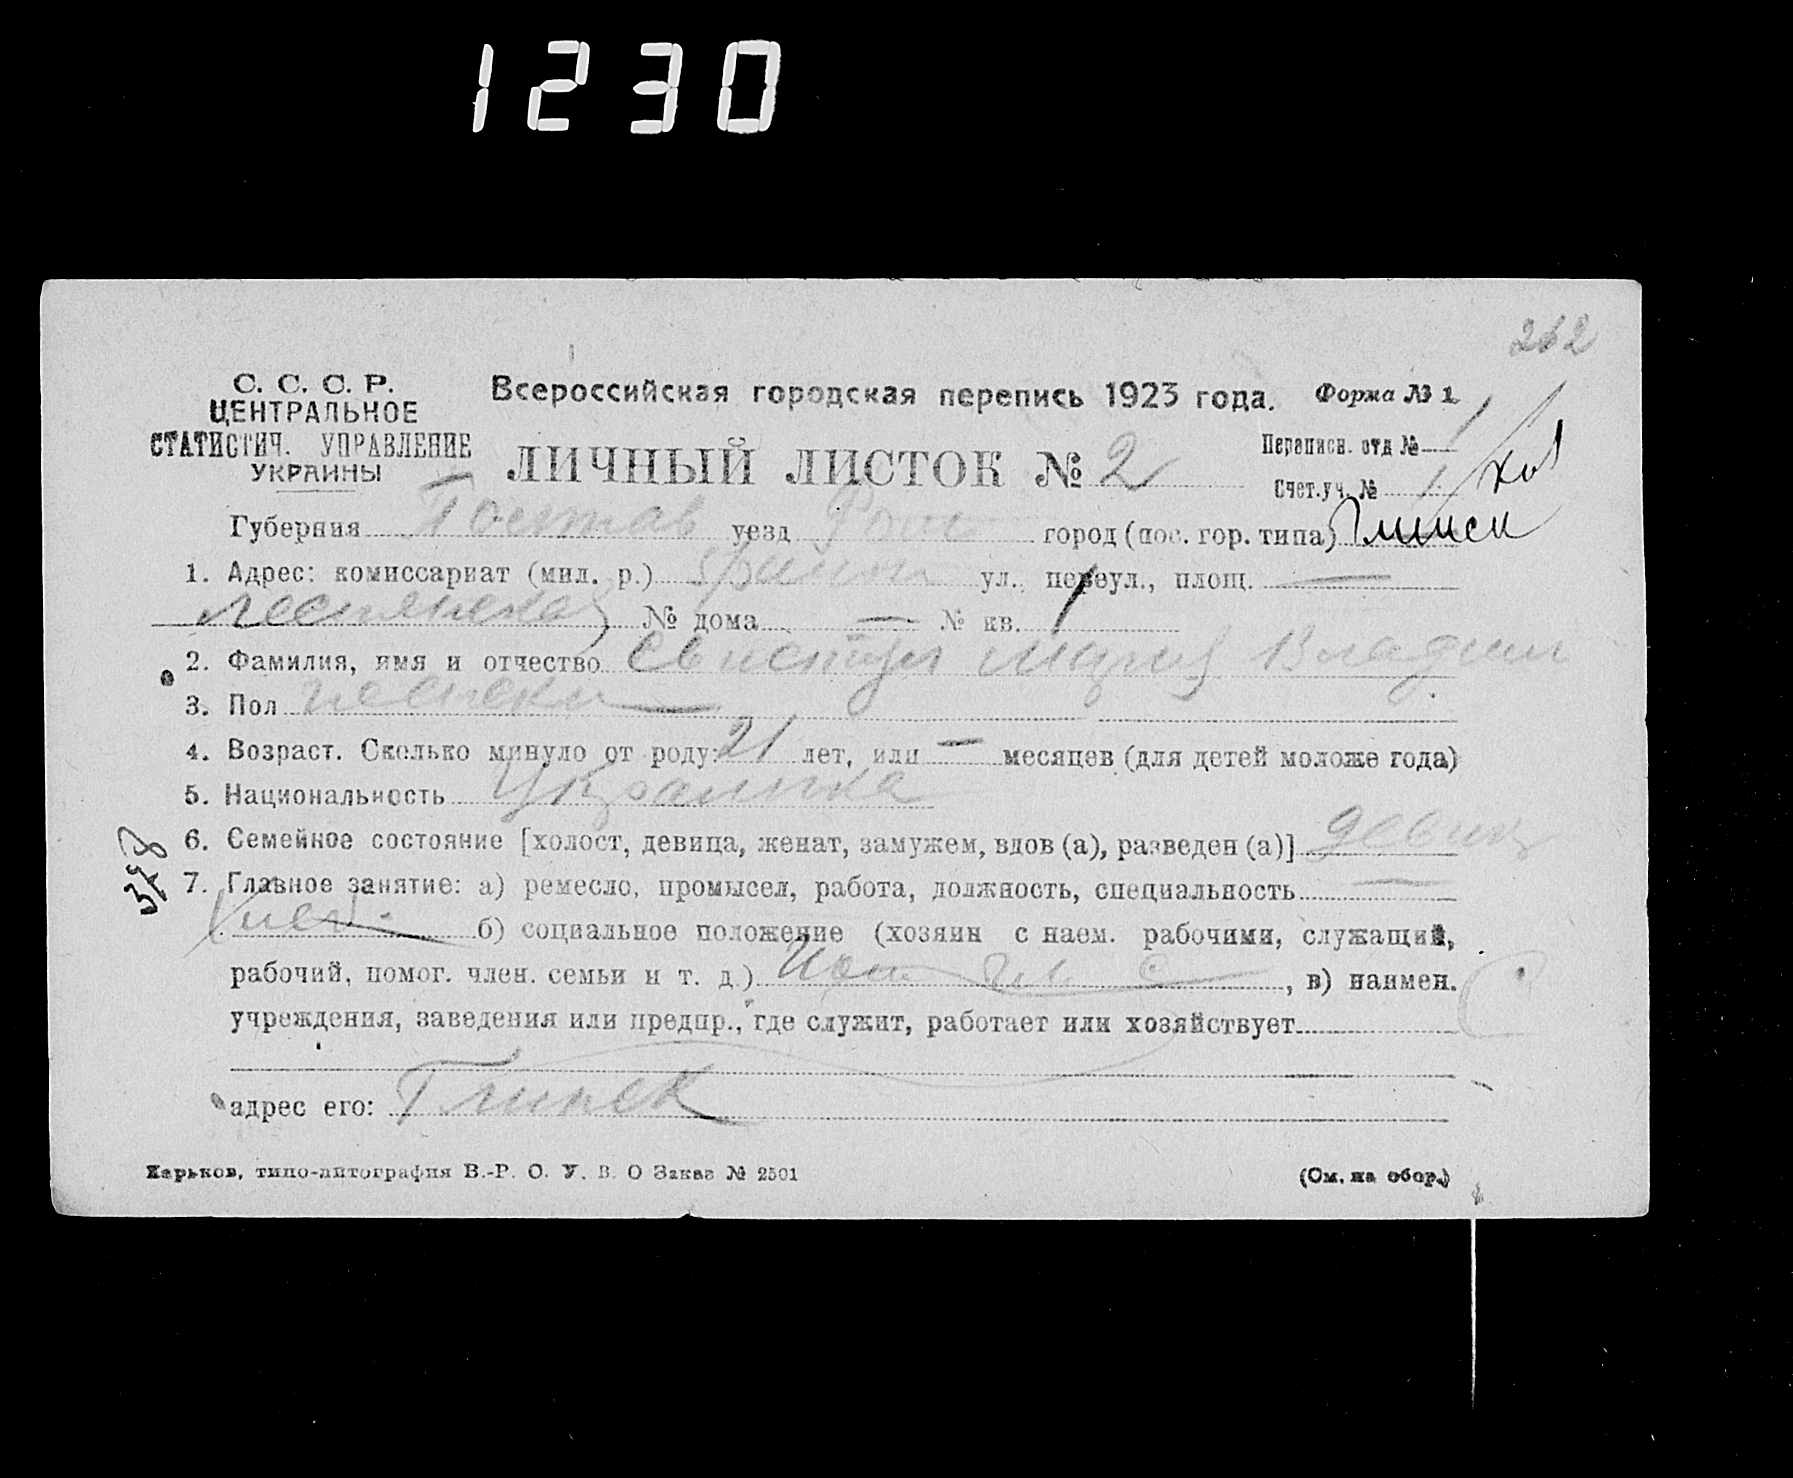 1230
262
С. С. С. Р.
ЦЕНТРАЛЬНОЕ
СТАТИСТИЧ. УПРАВЛЕНИЕ
УКРАИНЫ
Всероссийская городская перепись 1923 года. Форма № 1
ЛИЧНЫЙ ЛИСТОК № 2
Переписн. отд № 1
Счет.уч. № 1
Губерния Полтав уезд Ром город (пос. гор. типа) Глинск
1. Адрес: комиссариат (мил. р.) ул. переул., площ. —
№ дома — № кв. 1
2. Фамилия, имя и отчество Свистун Мария Владим
3. Пол женский
4. Возраст. Сколько минуло от роду: 21 лет, или — месяцев (для детей моложе года)
5. Национальность Украинка
6. Семейное состояние [холост, девица, женат, замужем, вдов (а), разведен (а)] девица
7. Главное занятие: а) ремесло, промысел, работа, должность, специальность —
б) социальное положение (хозяин с наем. рабочими, служащий,
рабочий, помог. член. семьи и т. д.) , в) наимен.
учреждения, заведения или предпр., где служит, работает или хозяйствует
адрес его: Глинск
Харьков, типо-литография В.-Р. О. У. В. О Заказ № 2501
(См. на обор.)